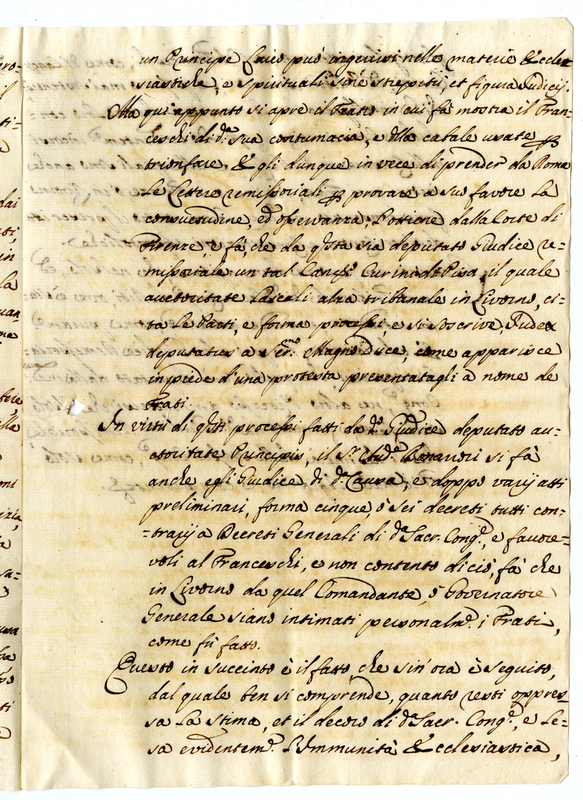 un Principe laico può ingerirsi nelle materie Eccle-
siastiche, e spirituali sine strepitu, et figura Judicij.
Ma qui appunto si apre il Teatro in cui fà mostra il Fran-
ceschi di d.a sua contumacia, e della cabale usate p
trionfare. Egli dunque in vece di prender da Roma
Le Lettere remissoriali p provare a suo favore La
consuetudine, ed osservanza, L'ottiene dalla Corte di
Firenze, e fà, che da q.sta sia deputato Giudice re-
missoriale un tal Can.co Curini di Pisa, il quale
auctoritate Laicali alza tribunale in Livorno, ci-
ta Le Parti, e forma processi, e si soscrive, Judex
deputatus a Ser.o Magno Duce, come apparisce
in piede d'una protesta presentatagli a nome de
Frati.
In virtù di q.sti processi fatti da d.o Giudice deputato au-
ctoritate Principis, il S.r Aud.e si fà
anche egli Giudice di d.a Causa, e doppo varij atti
preliminari, forma cinque, ò sei decreti tutti con-
-trarij a Decreti Generali di d.a Sacr. Cong.e, e favore-
voli al Franceschi, e non contento di ciò, fà che
in Livorno da quel Comandante, ò Governatore
Generale siano intimati personalm.e i Frati,
come fù fatto.
Questo in succinto è il fatto, che sin'ora è seguito,
dal quale ben si comprende, quanto resti oppres
sa La stima, et il decoro di d.a Sacr. Cong.e, e Le-
sa evidentem.e L'Immunità Ecclesiastica,